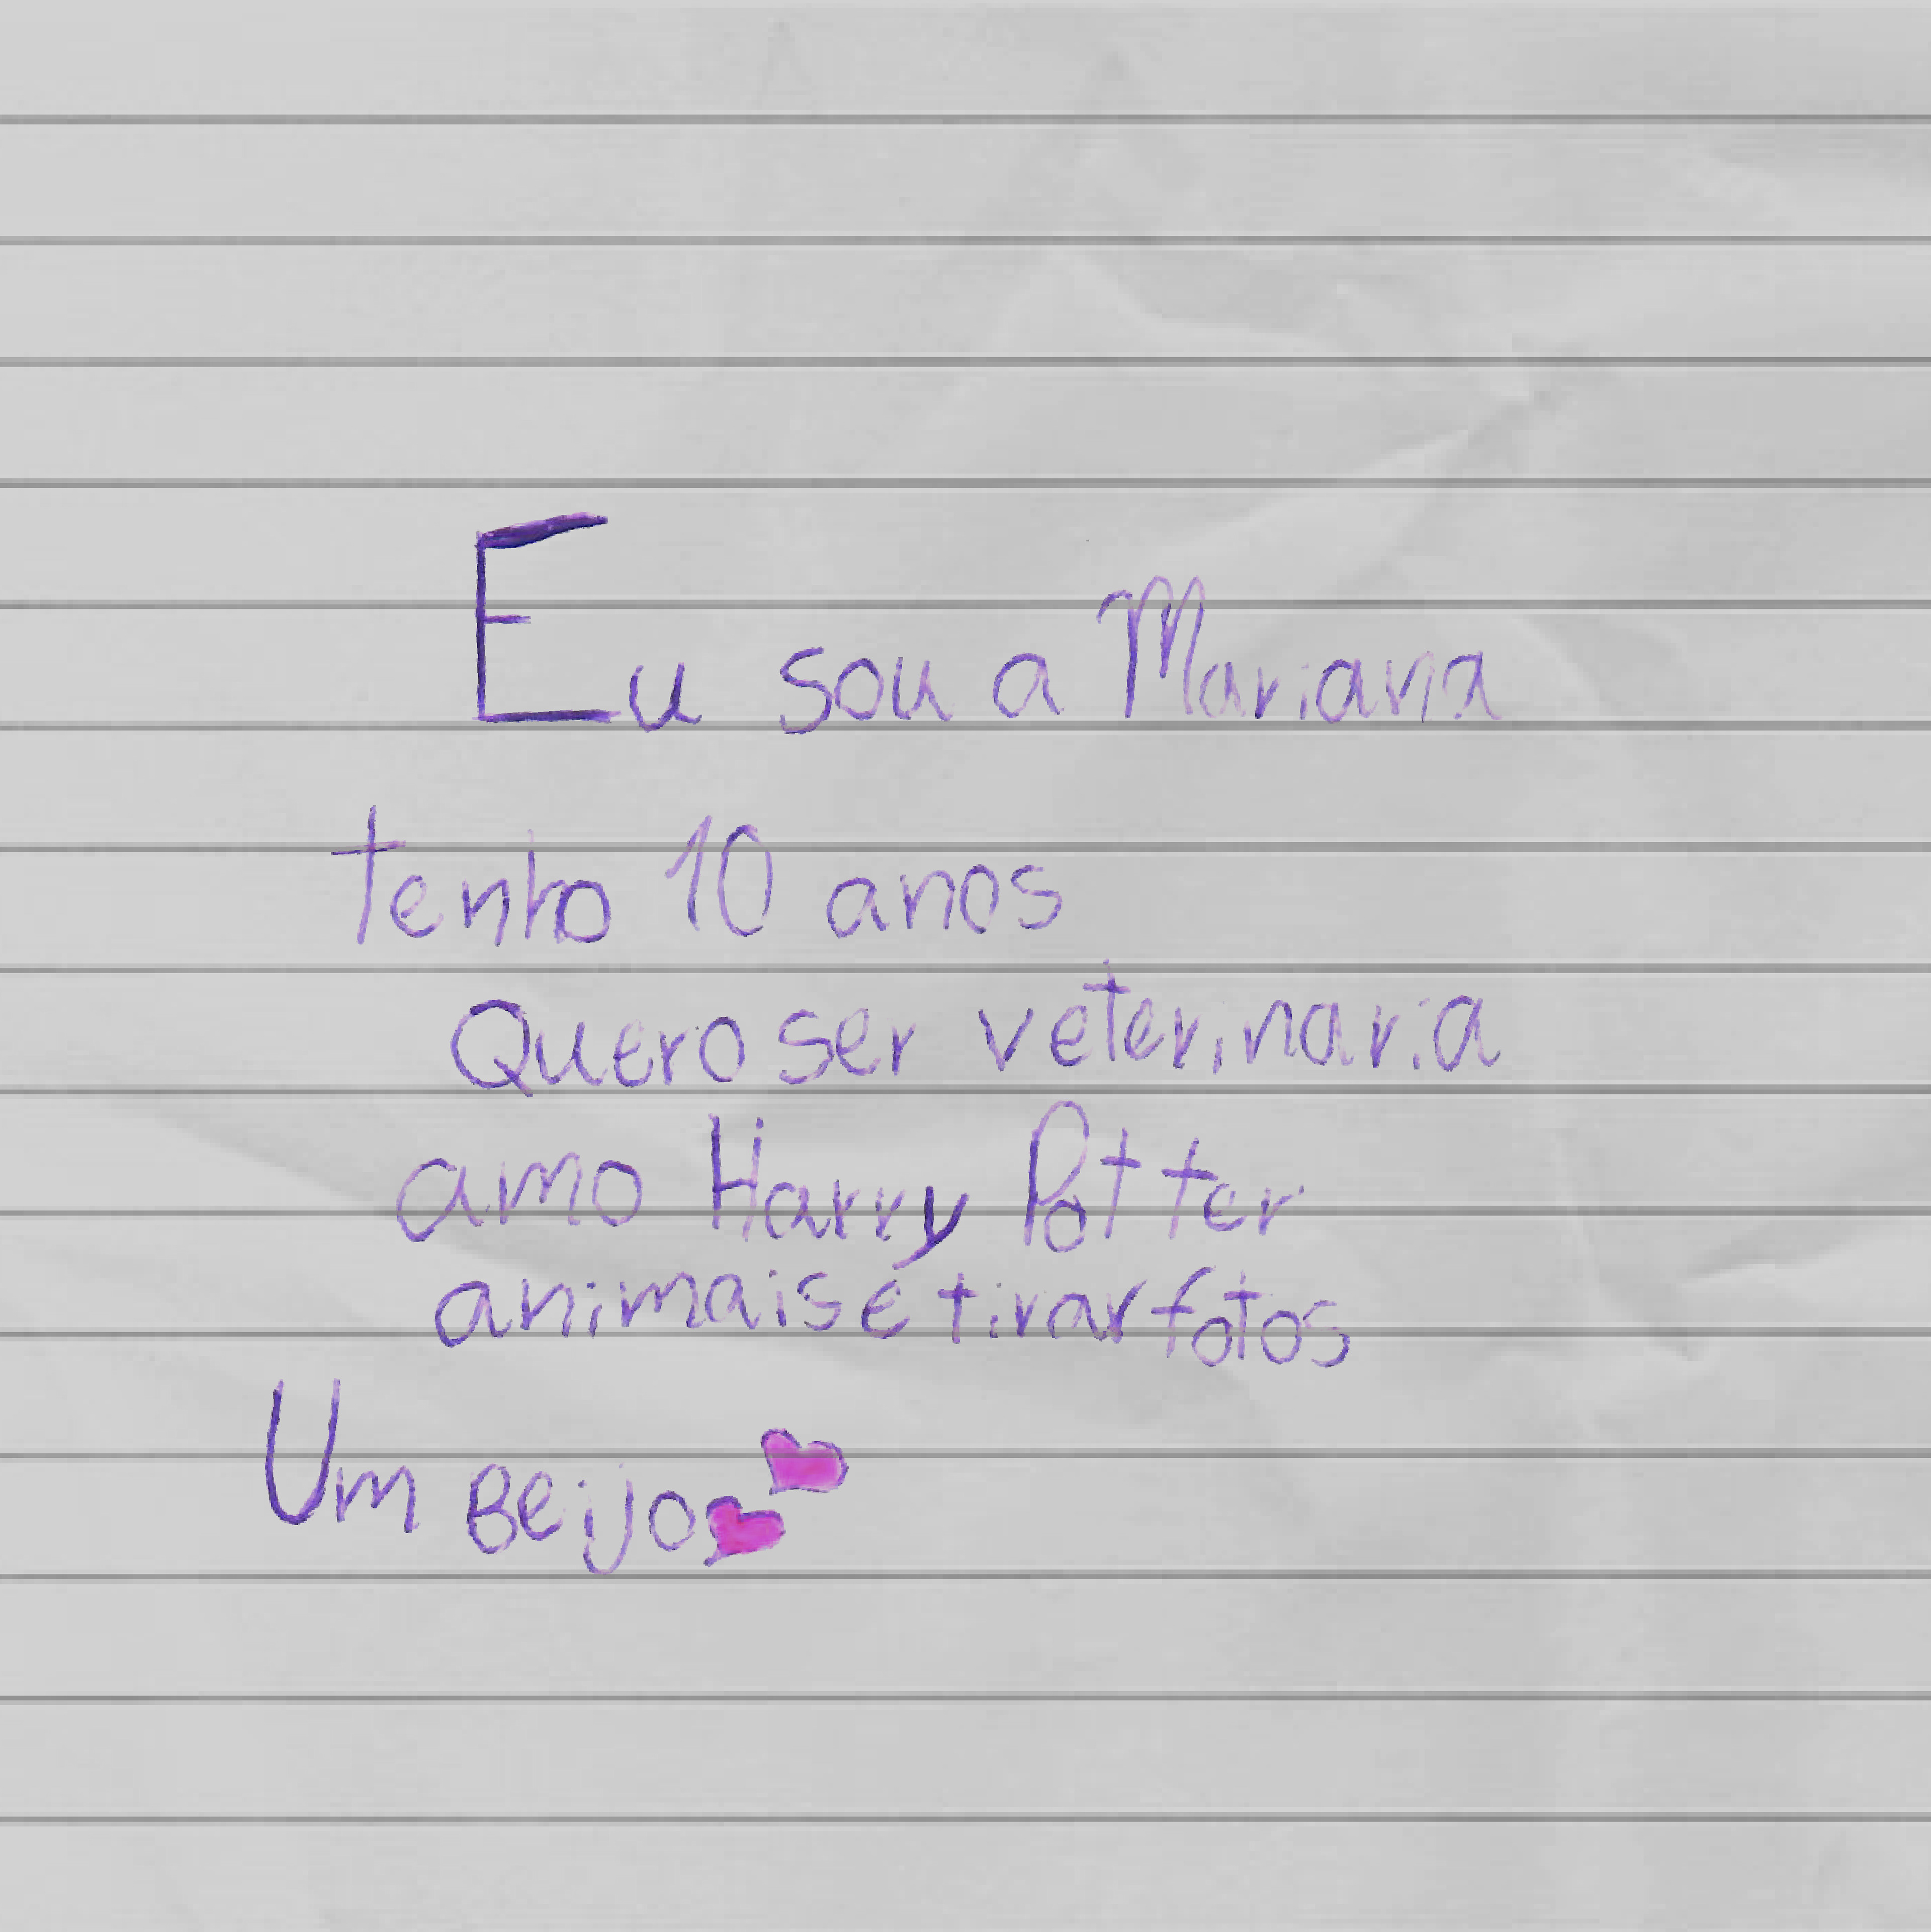 Eu sou a Mariana
tenho 10 anos
Quero ser veterinaria
amo Harry Potter
animais e tirar fotos
Um Beijo